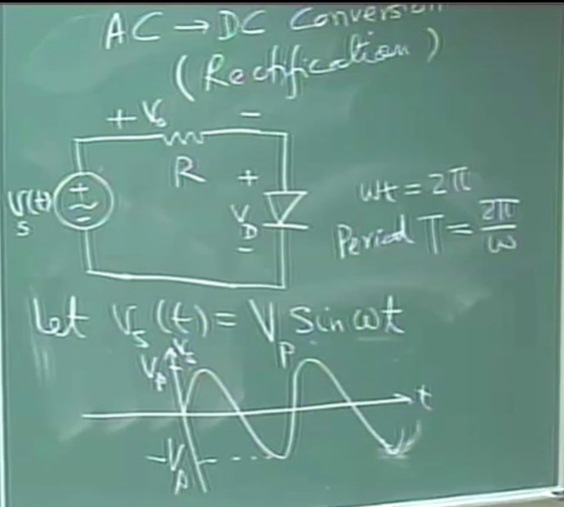 AC → DC Conversion
(Rectification)
+ V₀ −
R
Vs(t)
+
−
+
VD
−
ωt = 2π
Period T = 2π/ω
Let Vs(t) = Vp sin ωt
Vp
Vs
t
−Vp